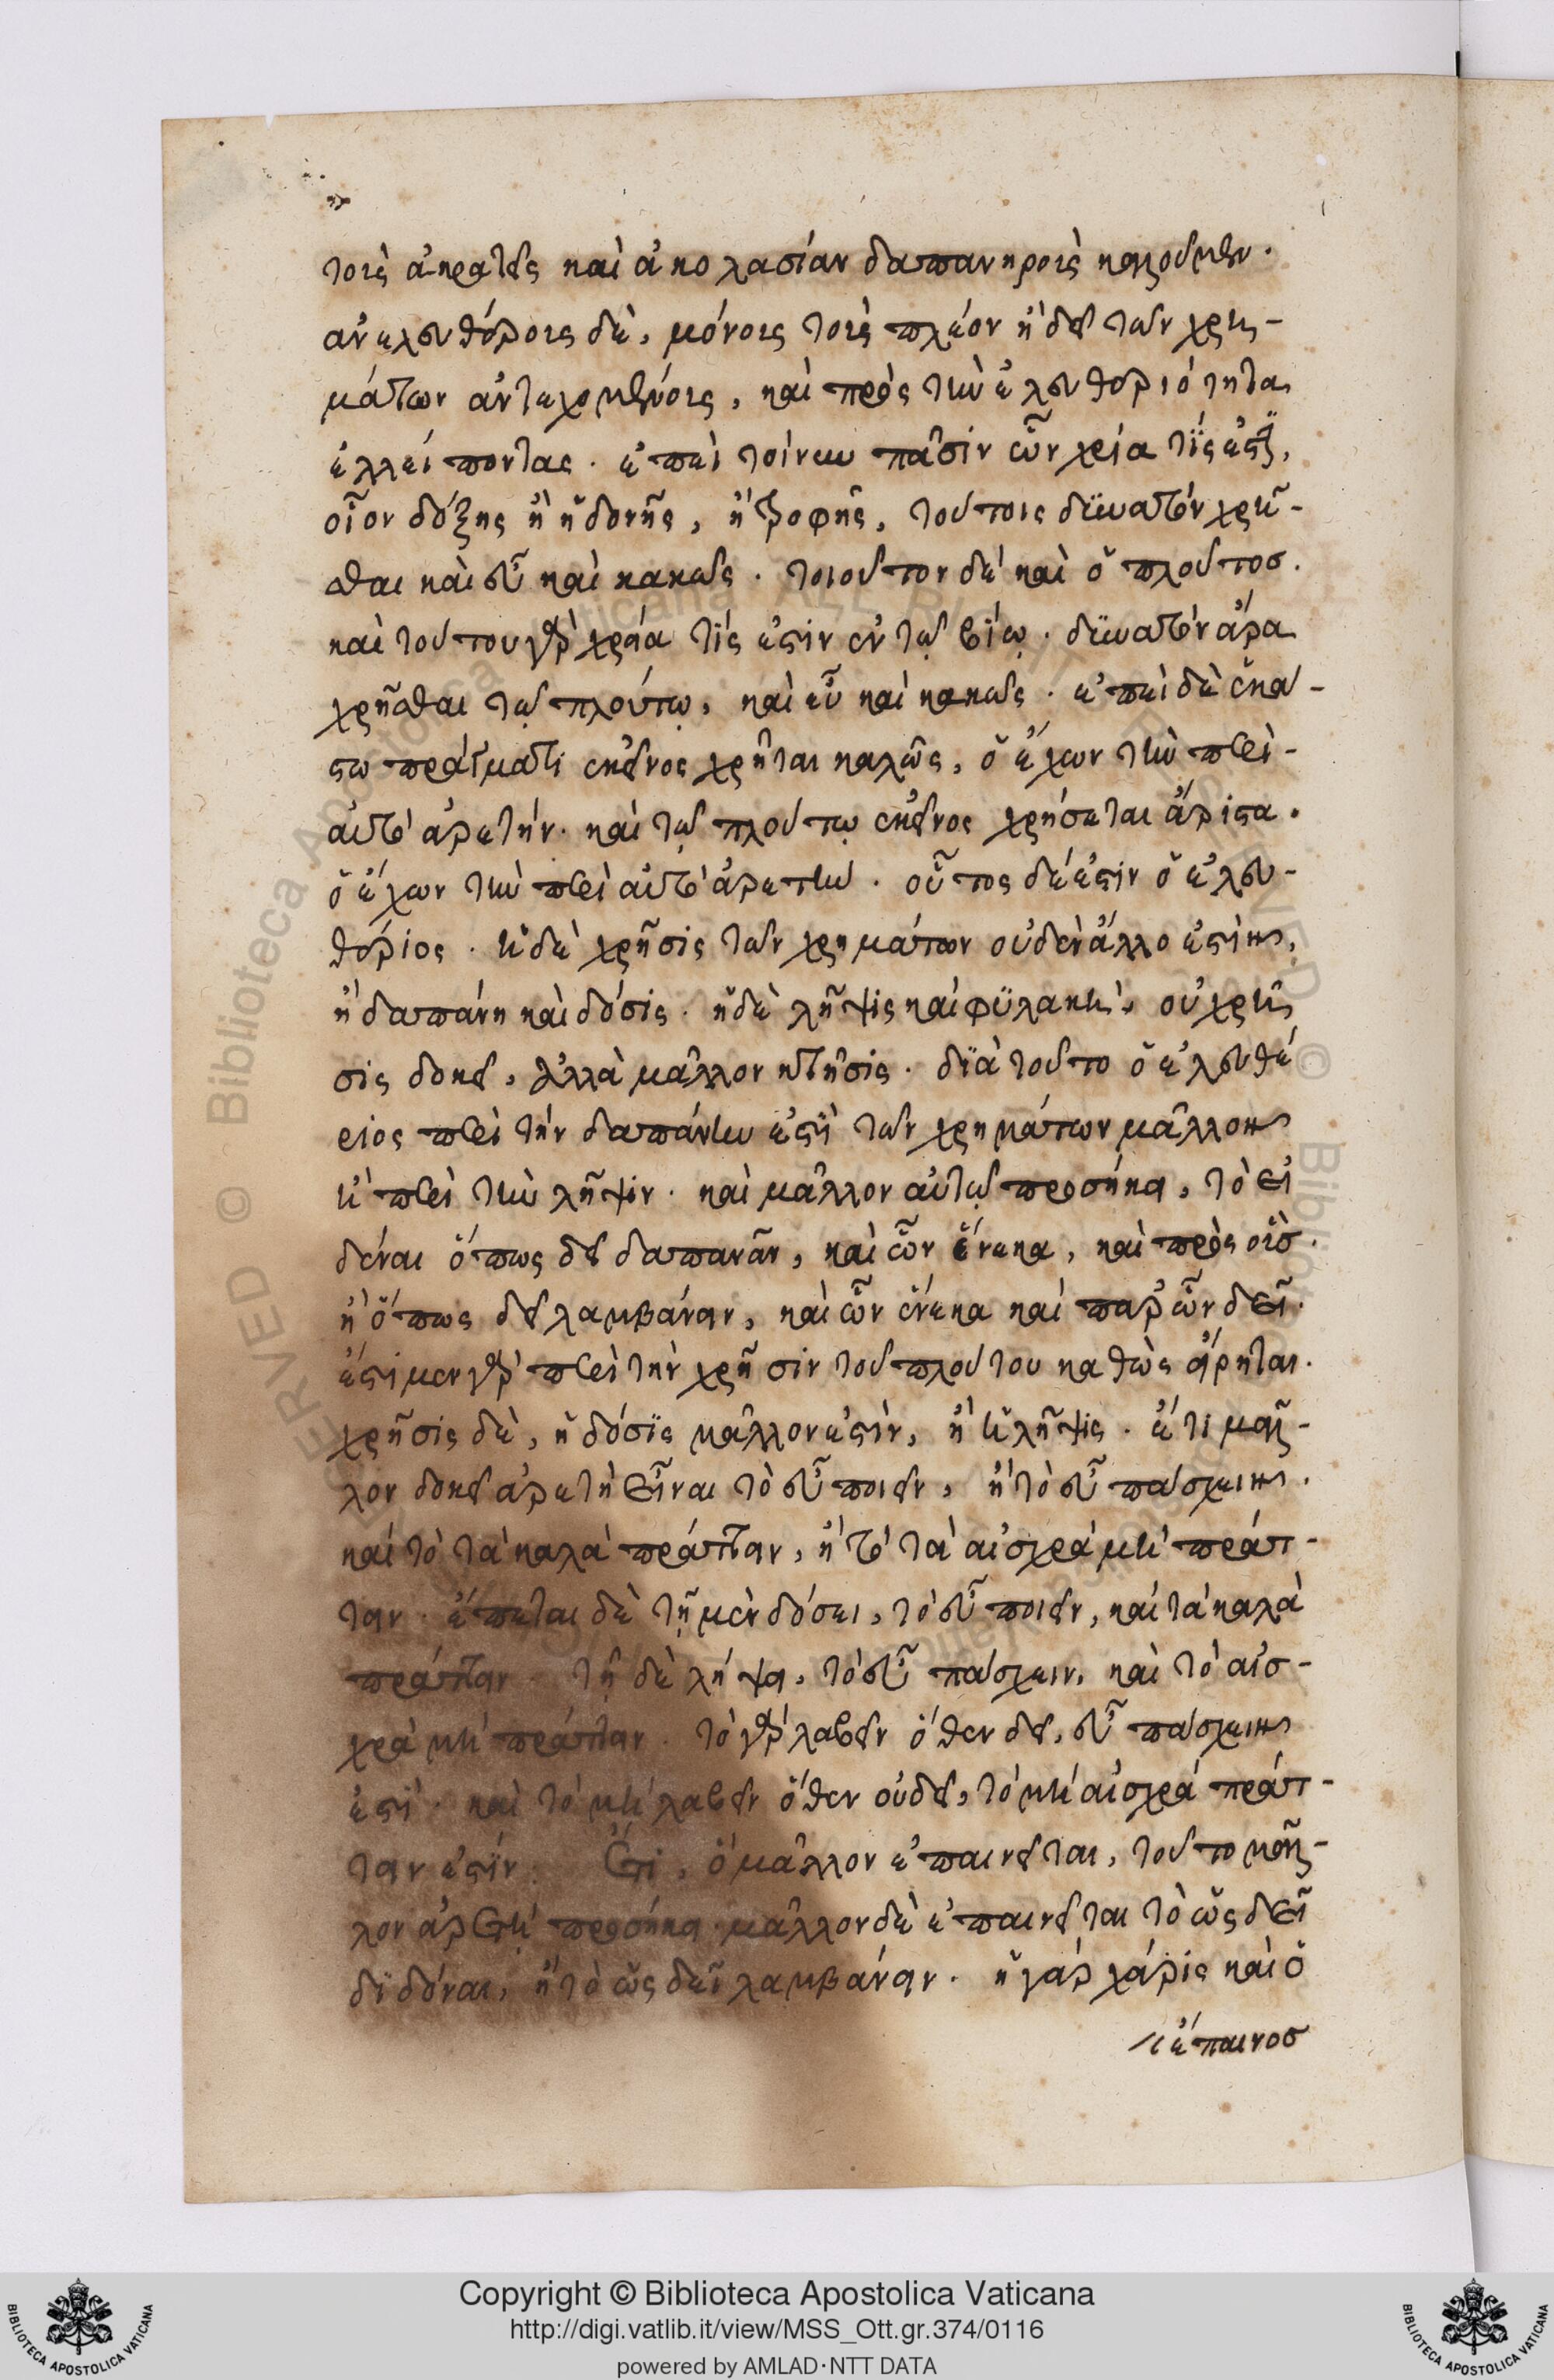 τοὺς ἀκρατεῖς καὶ ἀκολασίαν δαπανηροὺς καλοῦμεν.
ἀνελευθέρους δὲ, μόνους τοὺς πλέον ἢ δεῖ τῶν χρη-
μάτων ἀντεχομένους, καὶ πρὸς τὴν ἐλευθεριότητα
ἐλλείποντας. ἐπεὶ τοίνυν πᾶσιν ὧν χρεία τίς ἐστι,
οἷον δόξης ἢ ἡδονῆς, ἢ τροφῆς, τούτοις δυνατὸν χρῆ-
σθαι καὶ εὖ καὶ κακῶς. τοιοῦτον δὲ καὶ ὁ πλοῦτος.
καὶ τούτου γὰρ χρεία τίς ἐστιν ἐν τῷ βίῳ. δυνατὸν ἄρα
χρῆσθαι τῷ πλούτῳ, καὶ εὖ καὶ κακῶς. ἐπεὶ δὲ ἑκά-
στω πράγματι ἐκεῖνος χρῆται καλῶς, ὁ ἔχων τὴν περὶ
αὐτὸ ἀρετήν. καὶ τῷ πλούτῳ ἐκεῖνος χρήσεται ἄριστα.
ὁ ἔχων τὴν περὶ αὐτὸ ἀρετήν. οὗτος δέ ἐστιν ὁ ἐλευ-
θέριος. ἡ δὲ χρῆσις τῶν χρημάτων οὐδὲν ἄλλο ἐστὶν,
ἢ δαπάνη καὶ δόσις. ἡ δὲ λῆψις καὶ φυλακὴ, οὐ χρῆ
σις δοκεῖ, ἀλλὰ μᾶλλον κτῆσις. διὰ τοῦτο ὁ ἐλευθέ
ριος περὶ τὴν δαπάνην ἐστὶ τῶν χρημάτων μᾶλλον
ἢ περὶ τὴν λῆψιν. καὶ μᾶλλον αὐτῷ προσήκει, τὸ εἰ
δέναι ὅπως δεῖ δαπανᾶν, καὶ ὧν ἕνεκα, καὶ πρὸς οὓς.
ἢ ὅπως δεῖ λαμβάνειν, καὶ ὧν ἕνεκα καὶ παρ' ὧν δεῖ.
ἔστι μὲν γὰρ περὶ τὴν χρῆσιν τοῦ πλούτου καθὼς εἴρηται.
χρῆσις δὲ, ἡ δόσις μᾶλλον ἐστὶν, ἢ ἡ λῆψις. ἔτι μᾶλ-
λον δοκεῖ ἀρετὴ εἶναι τὸ εὖ ποιεῖν, ἢ τὸ εὖ πάσχειν.
καὶ τὸ τὰ καλὰ πράττειν, ἢ τὸ τὰ αἰσχρὰ μὴ πράτ-
τειν. ἕπεται δὲ τῇ μὲν δόσει, τὸ εὖ ποιεῖν, καὶ τὰ καλὰ
πράττειν. τῇ δὲ λήψει, τὸ εὖ πάσχειν, καὶ τὸ αἰσ-
χρὰ μὴ πράττειν. τὸ γὰρ λαβεῖν ὅθεν δεῖ, εὖ πάσχειν
ἐστί. καὶ τὸ μὴ λαβεῖν ὅθεν οὐ δεῖ, τὸ μὴ αἰσχρὰ πράτ-
τειν ἐστίν. Ἔτι, ὃ μᾶλλον ἐπαινεῖται, τοῦτο μᾶλ-
λον ἀρετῇ προσήκει. μᾶλλον δὲ ἐπαινεῖται τὸ ὡς δεῖ
διδόναι, ἢ τὸ ὡς δεῖ λαμβάνειν. ἡ γὰρ χάρις καὶ ὁ
ἔπαινος
Copyright © Biblioteca Apostolica Vaticana
http://digi.vatlib.it/view/MSS_Ott.gr.374/0116
powered by AMLAD·NTT DATA